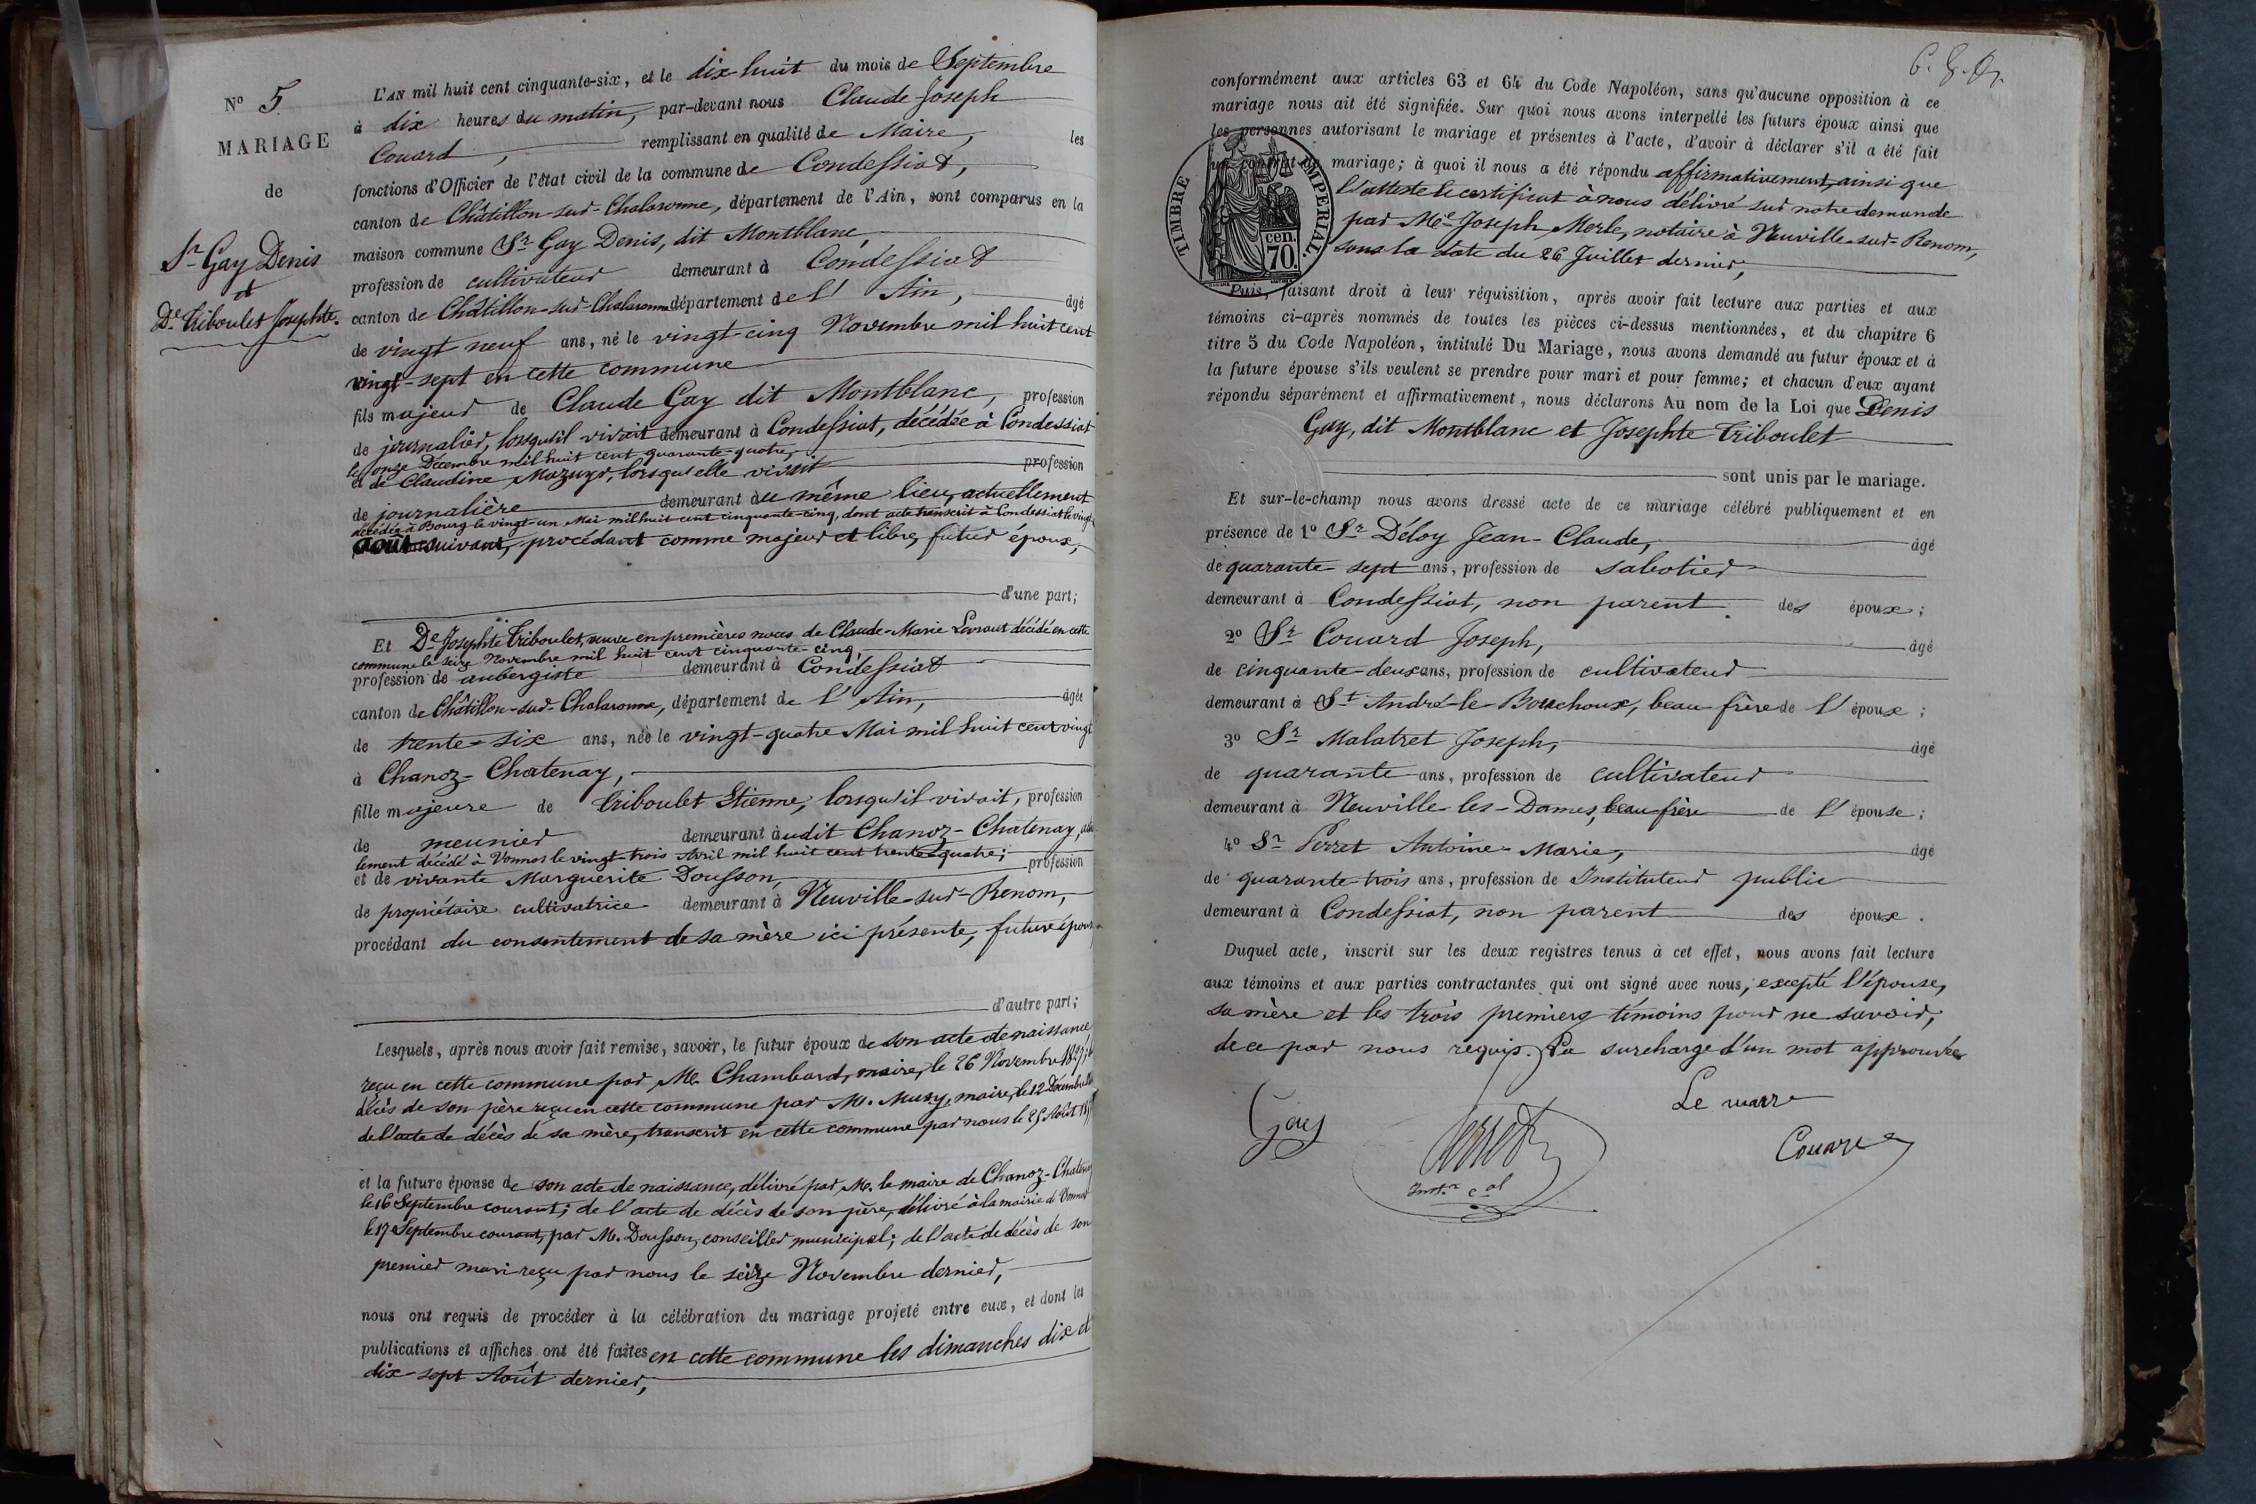 N° 5
MARIAGE
de
Sr Gay Denis
et
De Triboulet Josephte.
L'AN mil huit cent cinquante-six, et le dix-huit du mois de Septembre
à dix heures du matin, par-devant nous Claude Joseph
Couard, remplissant en qualité de Maire, les
fonctions d'Officier de l'état civil de la commune de Condeissiat,
canton de Châtillon-sur-Chalaronne, département de l'Ain, sont comparus en la
maison commune Sr Gay Denis, dit Montblanc,
profession de cultivateur demeurant à Condeissiat
canton de Châtillon-sur-Chalaronne département de l'Ain, âgé
de vingt neuf ans, né le vingt-cinq Novembre mil huit cent
vingt-sept en cette commune
fils majeur de Claude Gay dit Montblanc, profession
de journalier, lorsqu'il vivait demeurant à Condeissiat, décédée à Condeissiat
le onze Décembre mil huit cent quarante-quatre,
et de Claudine Mazuyr, lorsqu'elle vivait profession
de journalière demeurant au même lieu, actuellement
décédée à Bourg le vingt-un Mai mil huit cent cinquante-cinq, dont acte transcrit à Condeissiat le vingt
Août suivant, procédant comme majeur et libre, futur époux,
d'une part;
Et De Josephte Triboulet, veuve en premières noces de Claude-Marie Levraut décédé en cette
commune le seize Novembre mil huit cent cinquante-cinq,
profession de aubergiste demeurant à Condeissiat
canton de Châtillon-sur-Chalaronne, département de l'Ain, âgée
de trente-six ans, née le vingt-quatre Mai mil huit cent vingt
à Chanoz-Chatenay,
fille majeure de Triboulet Etienne, lorsqu'il vivait, profession
de meunier demeurant audit Chanoz-Chatenay,
lement décédé à Vonnas le vingt-trois Avril mil huit cent trente-quatre; profession
et de vivante Marguerite Dousson,
de propriétaire cultivatrice demeurant à Neuville-sur-Renom,
procédant du consentement de sa mère ici présente, future épouse
d'autre part;
Lesquels, après nous avoir fait remise, savoir, le futur époux de son acte de naissance
reçu en cette commune par M. Chambard, maire, le 26 Novembre 1827;
décès de son père reçu en cette commune par M. Muzy, maire, le 12 Décembre
de l'acte de décès de sa mère, transcrit en cette commune par nous le 25 Août
et la future épouse de son acte de naissance, délivré par M. le maire de Chanoz-Chatenay
le 16 Septembre courant; de l'acte de décès de son père, délivré à la mairie de Vonnas
le 17 Septembre courant, par M. Dousson, conseiller municipal; de l'acte de décès de son
premier mari reçu par nous le seize Novembre dernier,
nous ont requis de procéder à la célébration du mariage projeté entre eux, et dont les
publications et affiches ont été faites en cette commune les dimanches dix et
dix-sept Août dernier,
conformément aux articles 63 et 64 du Code Napoléon, sans qu'aucune opposition à ce
mariage nous ait été signifiée. Sur quoi nous avons interpellé les futurs époux ainsi que
les personnes autorisant le mariage et présentes à l'acte, d'avoir à déclarer s'il a été fait
un contrat de mariage; à quoi il nous a été répondu affirmativement, ainsi que
l'atteste le certificat à nous délivré sur notre demande
par Me Joseph Merle, notaire à Neuville-sur-Renom,
sous la date du 26 Juillet dernier,
TIMBRE IMPERIAL.
cen.
70.
Puis, faisant droit à leur réquisition, après avoir fait lecture aux parties et aux
témoins ci-après nommés de toutes les pièces ci-dessus mentionnées, et du chapitre 6
titre 5 du Code Napoléon, intitulé Du Mariage, nous avons demandé au futur époux et à
la future épouse s'ils veulent se prendre pour mari et pour femme; et chacun d'eux ayant
répondu séparément et affirmativement, nous déclarons Au nom de la Loi que Denis
Gay, dit Montblanc et Josephte Triboulet
sont unis par le mariage.
Et sur-le-champ nous avons dressé acte de ce mariage célébré publiquement et en
présence de 1° Sr Déloy Jean-Claude, âgé
de quarante sept ans, profession de sabotier
demeurant à Condeissiat, non parent des époux;
2° Sr Couard Joseph, âgé
de cinquante-deux ans, profession de cultivateur
demeurant à St André-le-Bouchoux, beau frère de l'époux;
3° Sr Malatret Joseph, âgé
de quarante ans, profession de cultivateur
demeurant à Neuville-les-Dames, beau-frère de l'épouse;
4° Sr Perret Antoine-Marie, âgé
de quarante-trois ans, profession de Instituteur public
demeurant à Condeissiat, non parent des époux.
Duquel acte, inscrit sur les deux registres tenus à cet effet, nous avons fait lecture
aux témoins et aux parties contractantes qui ont signé avec nous, excepté l'épouse,
sa mère et les trois premiers témoins pour ne savoir,
de ce par nous requis. La surcharge d'un mot approuvée
Le maire
Gay
Perret
Couard